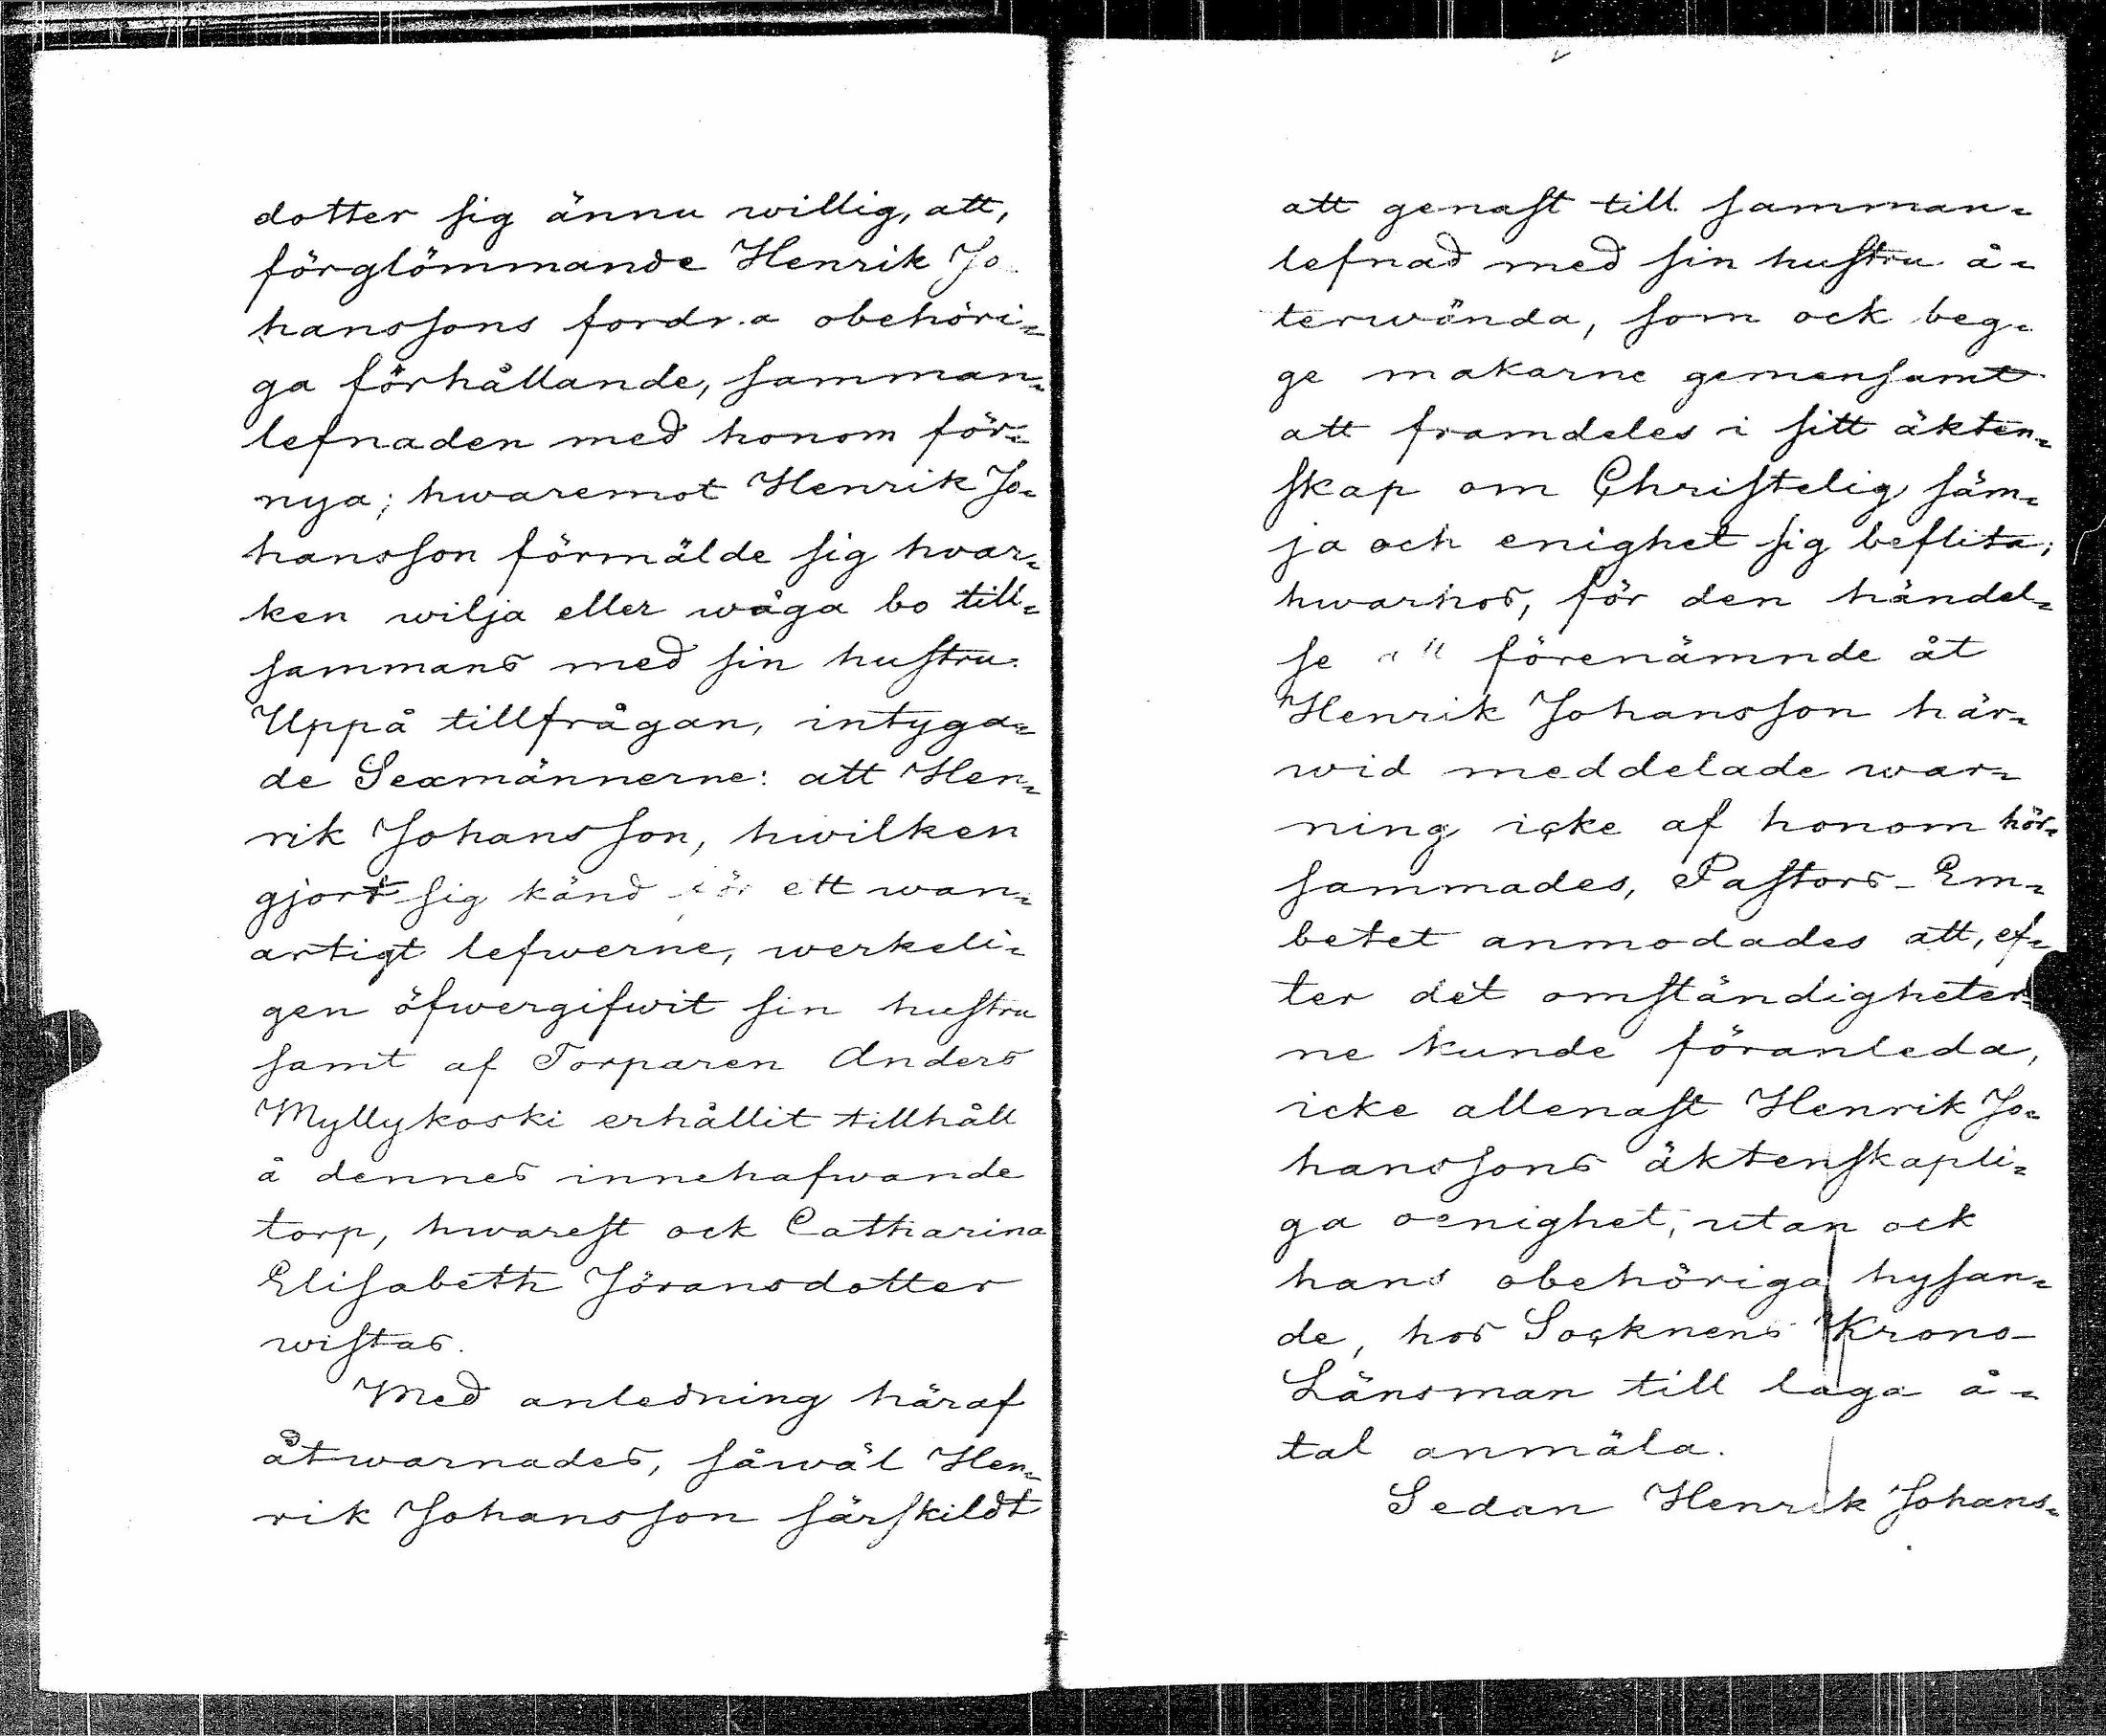 dotter sig ännu willig, att,
förglömmande Henrik Jo
hanssons fordna obehöri=
ga förhållande, samman=
lefnaden med honom för=
nya; hwaremot Henrik Jo=
hansson förmälde sig hvar=
ken wilja eller wåga bo till=
sammans med sin hustru.
Uppå tillfrågan, intyga=
de Sexmännerne: att Hen=
rik Johansson, hwilken
gjort sig känd för ett wan=
artigt lefwerne, werkeli=
gen öfwergifwit sin hustru
samt af Torparen Anders
Myllykoski erhållit tillhåll
å dennes innehafwande
torp, hwarest ock Catharina
Elisabeth Jöransdotter
wistas.
Med anledning häraf
åtwarnades, såwäl Hen=
rik Johansson särskildt
att genast till samman=
lefnad med sin hustru å=
terwända, som ock beg=
ge makarne gemensamt
att framdeles i sitt äkten=
skap om Christelig säm=
ja och enighet sig beflita;
hwarhos, för den händel=
se att förenämnde åt
Henrik Johansson här=
wid meddelade war=
ning icke af honom hör=
sammades, Pastors-Em=
betet anmodades att, ef=
ter det omständigheter=
ne kunde föranleda,
icke allenast Henrik Jo=
hanssons äktenskapli=
ga oenighet, utan ock
hans obehöriga hysan=
de, hos Socknens Krono-
Länsman till laga å=
tal anmäla.
Sedan Henrik Johans=